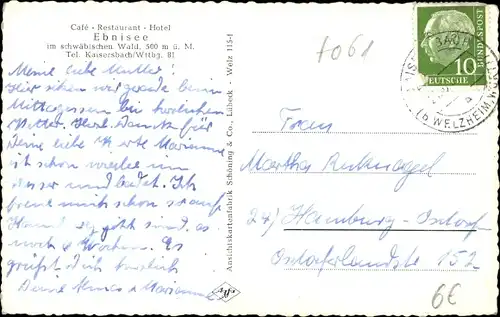 Café - Restaurant - Hotel
Ebnisee
im schwäbischen Wald, 500 m ü. M.
Tel. Kaisersbach/Wttbg. 81
Meine liebe Mutter!
Hier sitzen wir gerade beim
Mittagessen bei herrlichem
Wetter. Herzl. Dank für
Deine liebe Karte Marianne
ist schon wieder im
Wasser und badet. Ich
freue mich schon so auf
noch 2 Wochen. Es
grüßt Dich herzlich
Deine Marianne
Ansichtskartenfabrik Schöning & Co., Lübeck Welz 115-f
7061
10
DEUTSCHE BUNDESPOST
(b WELZHEIM
Frau
Martha Rucknagel
24) Hamburg-Osdorf
Osdorferlandstr 152
6€